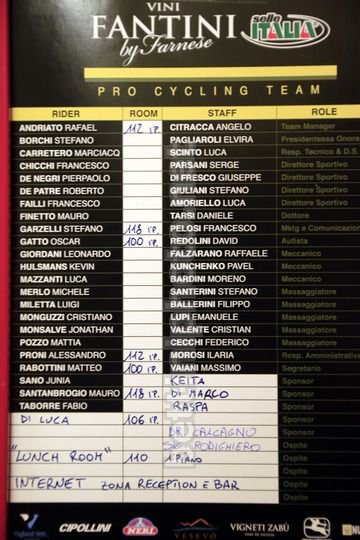 VINI
FANTINI
by Farnese
selle
ITALIA
PRO CYCLING TEAM
RIDER ROOM STAFF ROLE
ANDRIATO RAFAEL 112 IP. CITRACCA ANGELO Team Manager
BORCHI STEFANO PAGLIAROLI ELVIRA Presidentessa Onora
CARRETERO MARCIACQ SCINTO LUCA Resp. Tecnico & D.S.
CHICCHI FRANCESCO PARSANI SERGE Direttore Sportivo
DE NEGRI PIERPAOLO DI FRESCO GIUSEPPE Direttore Sportivo
DE PATRE ROBERTO GIULIANI STEFANO Direttore Sportivo
FAILLI FRANCESCO AMORIELLO LUCA Direttore Sportivo
FINETTO MAURO TARSI DANIELE Dottore
GARZELLI STEFANO 118 IP. PELOSI FRANCESCO Mktg e Comunicazion
GATTO OSCAR 100 IP. REDOLINI DAVID Autista
GIORDANI LEONARDO FALZARANO RAFFAELE Meccanico
HULSMANS KEVIN KUNCHENKO PAVEL Meccanico
MAZZANTI LUCA BARDINI MORENO Meccanico
MERLO MICHELE SANTERINI STEFANO Massaggiatore
MILETTA LUIGI BALLERINI FILIPPO Massaggiatore
MONGUZZI CRISTIANO LUPI EMANUELE Massaggiatore
MONSALVE JONATHAN VALENTE CRISTIAN Massaggiatore
POZZO MATTIA CECCHI FEDERICO Massaggiatore
PRONI ALESSANDRO 112 IP. MOROSI ILARIA Resp. Amministrativa
RABOTTINI MATTEO 100 IP. VAIANI MASSIMO Segretario
SANO JUNIA KEITA Sponsor
SANTANBROGIO MAURO 118 IP. DI MARCO Sponsor
TABORRE FABIO RASPA Sponsor
DI LUCA 106 IP. Sponsor
DR. CALCAGNO Sponsor
SIG. RODIGHIERO Ospite
"LUNCH ROOM" 110 1°PIANO Ospite
Ospite
INTERNET ZONA RECEPTION E BAR Ospite
CIPOLLINI NERI VESEVO VIGNETI ZABÙ